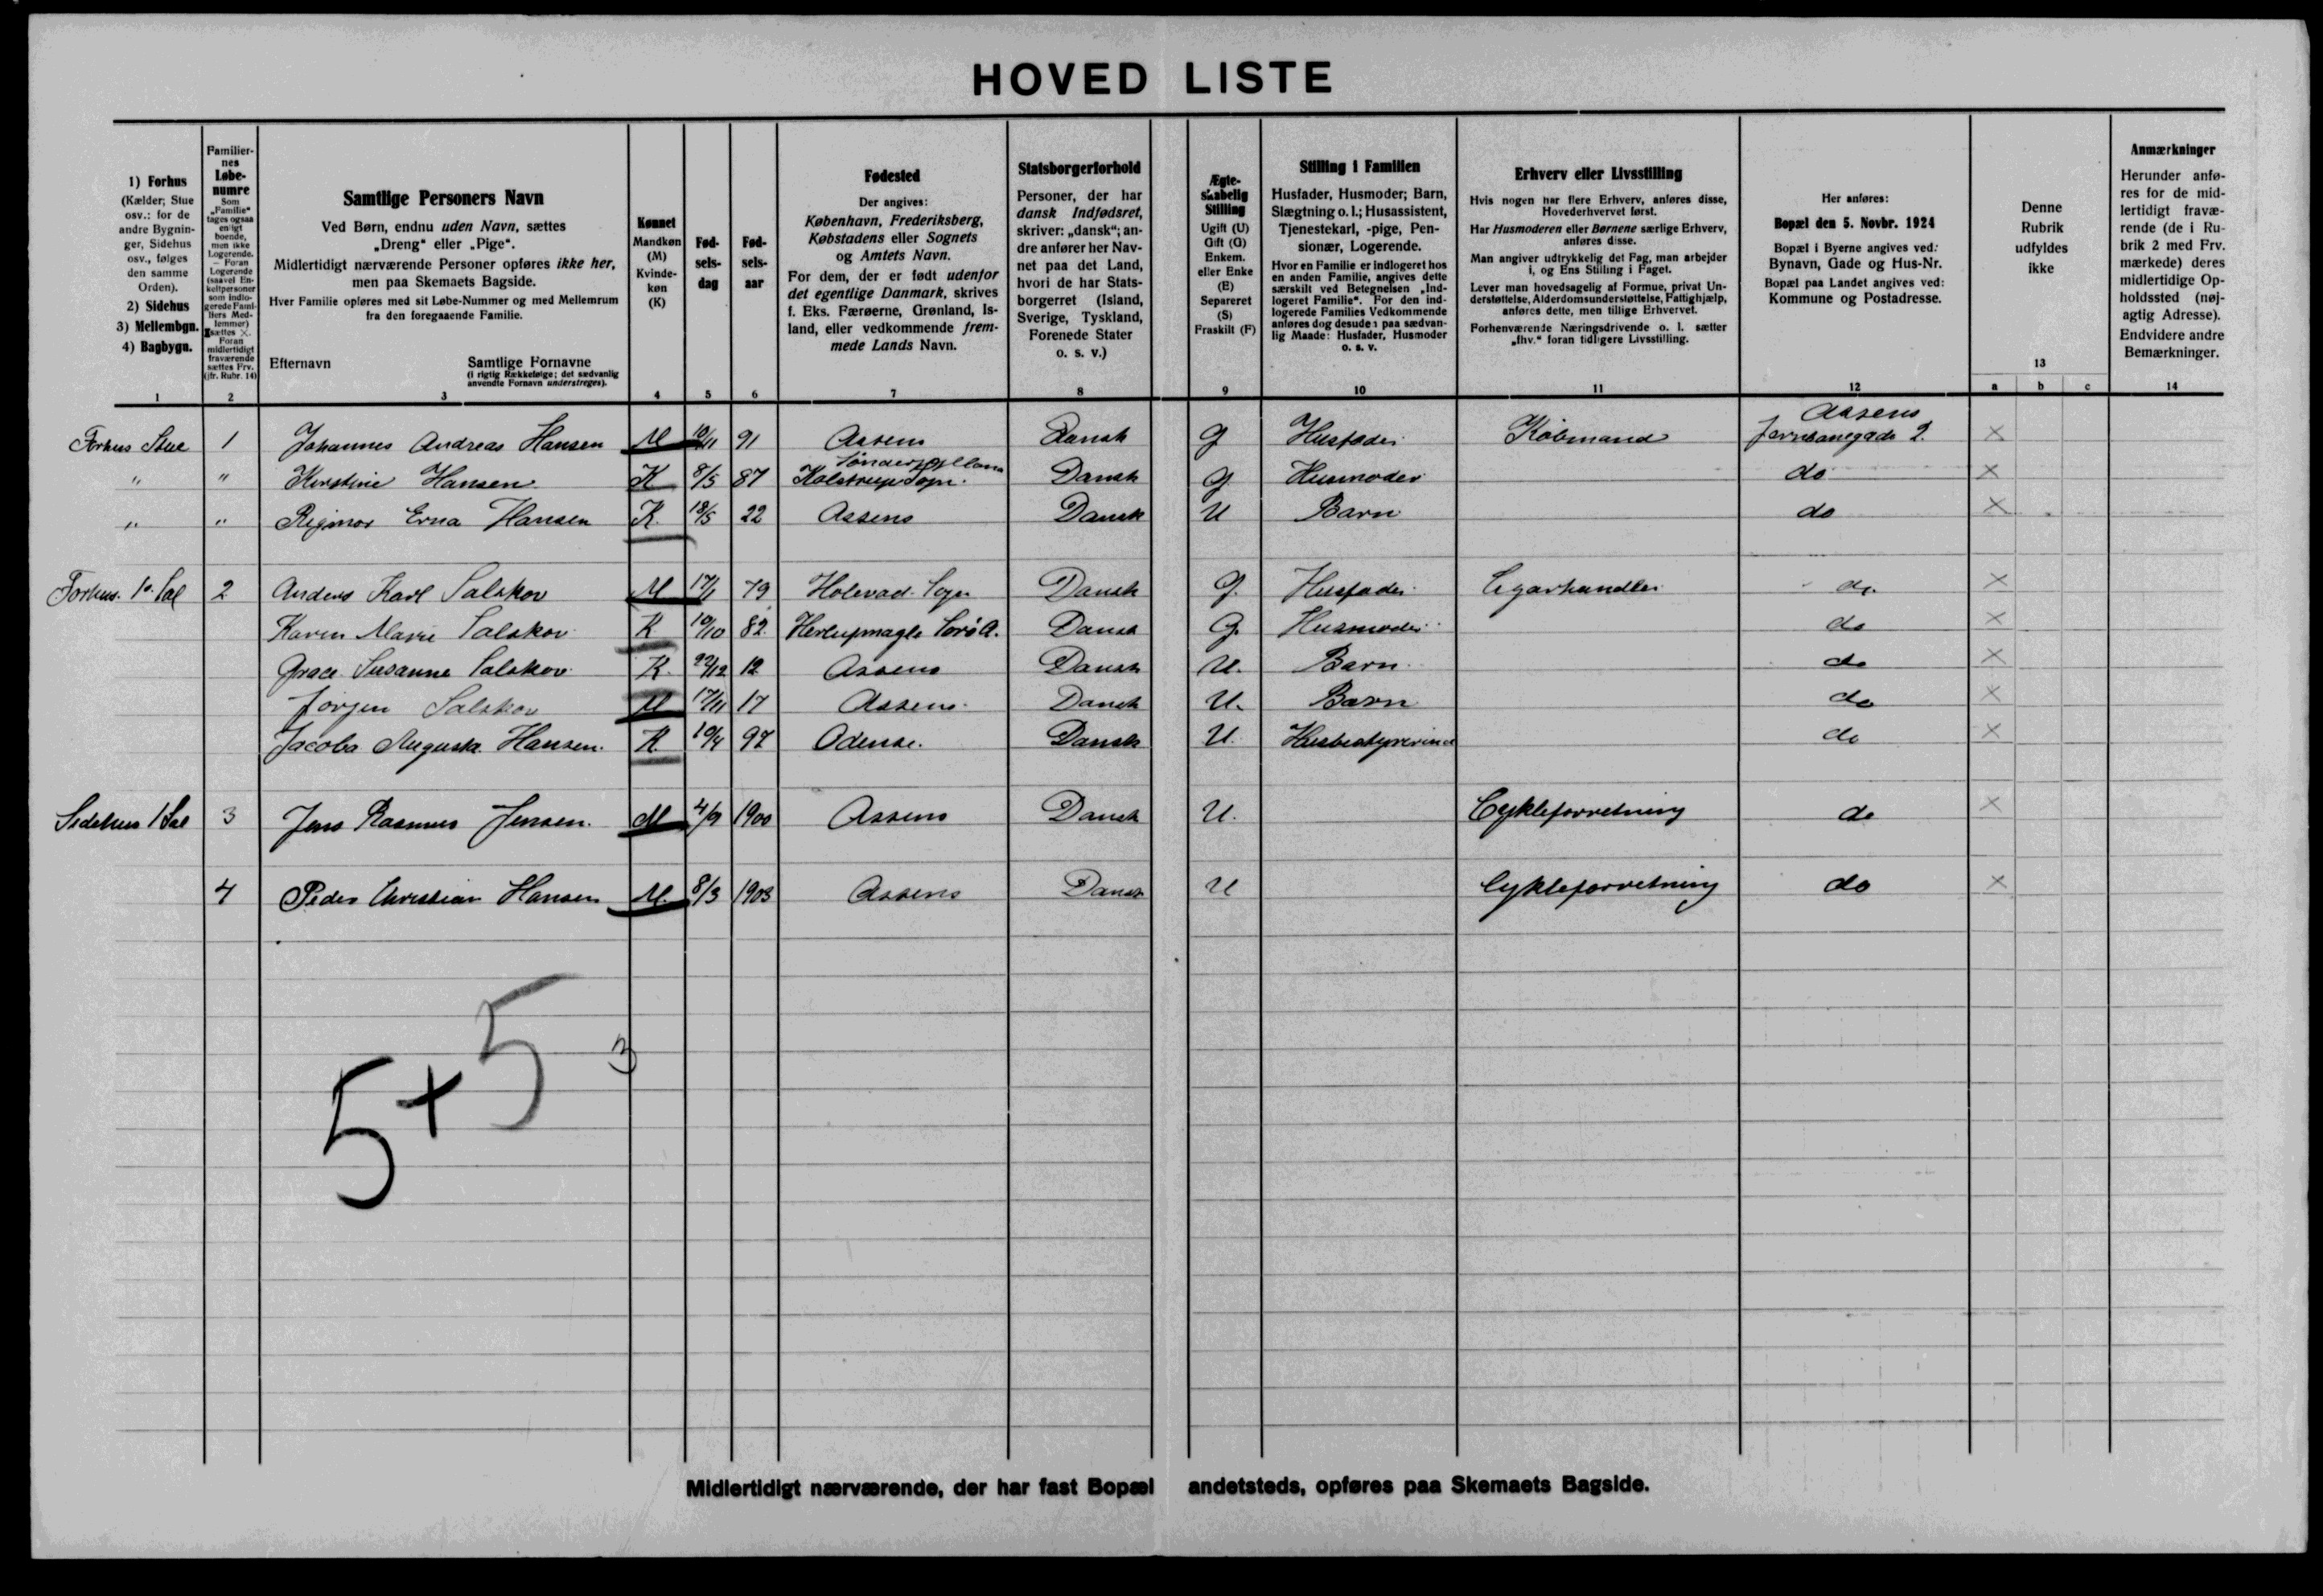 HOVED LISTE
1) Forhus
(Kælder; Stue
osv.: for de
andre Bygnin-
ger, Sidehus
osv., følges
den samme
Orden).
2) Sidehus
3) Mellembgn.
4) Bagbygn.
1
Familier-
nes
Løbe-
numre
Som
„Familie“
tages ogsaa
enligt
boende,
men ikke
Logerende.
— Foran
Logerende
(saavel En-
keltpersoner
som indlo-
gerede Fami-
liers Med-
lemmer)
sættes ×.
Foran
midlertidigt
fraværende
sættes Frv.
(jfr. Rubr. 14)
2
Samtlige Personers Navn
Ved Børn, endnu uden Navn, sættes
„Dreng“ eller „Pige“.
Midlertidigt nærværende Personer opføres ikke her,
men paa Skemaets Bagside.
Hver Familie opføres med sit Løbe-Nummer og med Mellemrum
fra den foregaaende Familie.
Efternavn Samtlige Fornavne
(i rigtig Rækkefølge; det sædvanlig
anvendte Fornavn understreges).
3
Kønnet
Mandkøn
(M)
Kvinde-
køn
(K)
4
Fød-
sels-
dag
5
Fød-
sels-
aar
6
Fødested
Der angives:
København, Frederiksberg,
Købstadens eller Sognets
og Amtets Navn.
For dem, der er født udenfor
det egentlige Danmark, skrives
f. Eks. Færøerne, Grønland, Is-
land, eller vedkommende frem-
mede Lands Navn.
7
Statsborgerforhold
Personer, der har
dansk Indfødsret,
skriver: „dansk“; an-
dre anfører her Nav-
net paa det Land,
hvori de har Stats-
borgerret (Island,
Sverige, Tyskland,
Forenede Stater
o. s. v.)
8
Ægte-
skabelig
Stilling
Ugift (U)
Gift (G)
Enkem.
eller Enke
(E)
Separeret
(S)
Fraskilt (F)
9
Stilling i Familien
Husfader, Husmoder; Barn,
Slægtning o. l.; Husassistent,
Tjenestekarl, -pige, Pen-
sionær, Logerende.
Hvor en Familie er indlogeret hos
en anden Familie, angives dette
særskilt ved Betegnelsen „Ind-
logeret Familie“. For den ind-
logerede Families Vedkommende
anføres dog desuden paa sædvan-
lig Maade: Husfader, Husmoder
o. s. v.
10
Erhverv eller Livsstilling
Hvis nogen har flere Erhverv, anføres disse,
Hovederhvervet først.
Har Husmoderen eller Børnene særlige Erhverv,
anføres disse.
Man angiver udtrykkelig det Fag, man arbejder
i, og Ens Stilling i Faget.
Lever man hovedsagelig af Formue, privat Un-
derstøttelse, Alderdomsunderstøttelse, Fattighjælp,
anføres dette, men tillige Erhvervet.
Forhenværende Næringsdrivende o. l. sætter
„fhv.“ foran tidligere Livsstilling.
11
Her anføres:
Bopæl den 5. Novbr. 1924
Bopæl i Byerne angives ved:
Bynavn, Gade og Hus-Nr.
Bopæl paa Landet angives ved:
Kommune og Postadresse.
12
Denne
Rubrik
udfyldes
ikke
13
a b c
Anmærkninger
Herunder anfø-
res for de mid-
lertidigt fravæ-
rende (de i Ru-
brik 2 med Frv.
mærkede) deres
midlertidige Op-
holdssted (nøj-
agtig Adresse).
Endvidere andre
Bemærkninger.
14
Assens
Forhus Stue 1 Johannes Andreas Hansen M 10/11 91 Assens Dansk G Husfader Købmand Jernbanegade 2. ×
Sønderjylland
" " Kirstine Hansen K 8/5 87 Kolstrup Sogn. Dansk G Husmoder do ×
" " Rigmor Erna Hansen K. 18/5 22 Assens Dansk U Barn do ×
Forhus. 1ᵒ. Sal 2 Anders Karl Salskov M 17/1 79 Holevad Sogn Dansk G. Husfader Cigarhandler do. ×
Karen Marie Salskov K 10/10 82. Herlufmagle Sorø A. Dansk G. Husmoder do ×
Grace Susanne Salskov K. 22/12 12 Assens Dansk U. Barn do ×
Jørgen Salskov M 17/11 17 Assens Dansk U. Barn do ×
Jacoba Augusta Hansen. K 10/4 97 Odense. Dansk U. Husbestyrerinde do ×
Sidehus 1 Sal 3 Jens Rasmus Jensen. M 4/9 1900 Assens Dansk U. Cykleforretning do ×
4 Peder Christian Hansen M. 8/3 1903 Assens Dansk U Cykleforretning do ×
5+5
3
Midlertidigt nærværende, der har fast Bopæl andetsteds, opføres paa Skemaets Bagside.